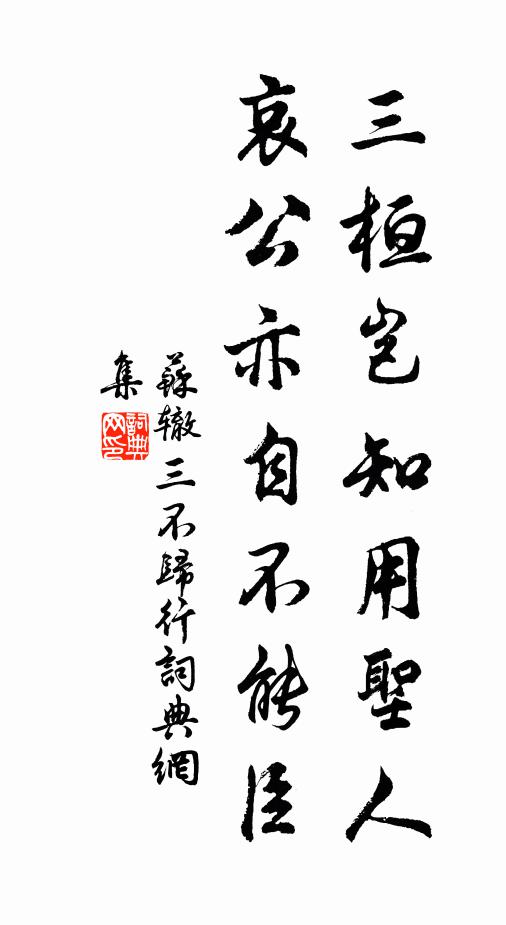 三桓岂知用聖人
哀公亦自不能臣
蘇辙三不歸行詞典網
集
詞典网印